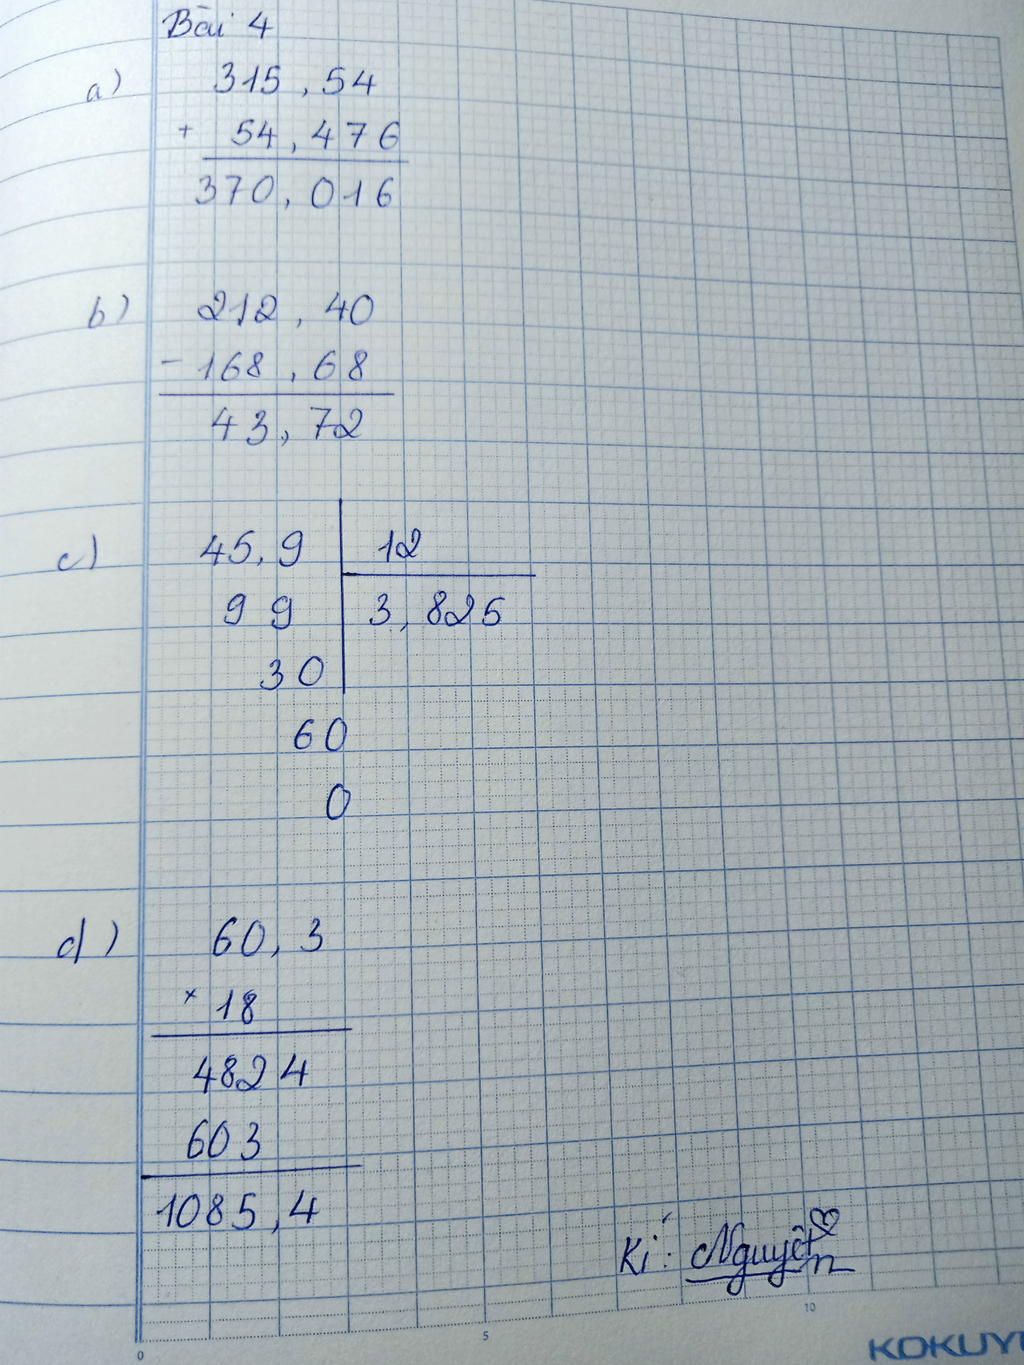 Bài 4
a) 315,54
+ 54,476
370,016
b) 212,40
- 168,68
43,72
c) 45,9 12
9 9 3,825
30
60
0
d) 60,3
× 18
4824
603
1085,4
Kí: Nguyệt
0 5 10
KOKUYO